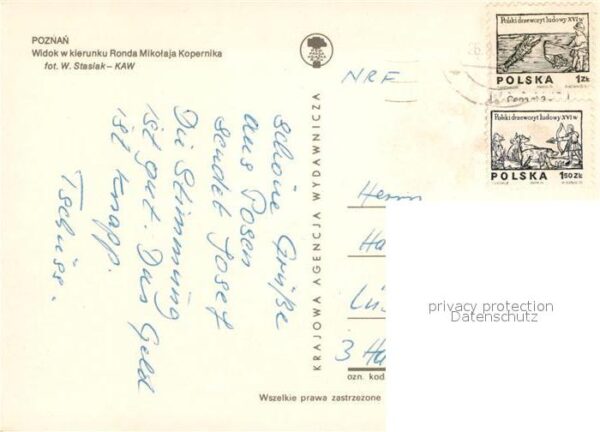 POZNAŃ
Widok w kierunku Ronda Mikołaja Kopernika
fot. W. Stasiak – KAW
schöne Grüße
aus Posen
sendet Josef
Die Stimmung
ist gut. Das Geld
ist knapp.
Tschüss.
KRAJOWA AGENCJA WYDAWNICZA
NRF
Polski drzeworyt ludowy XVI w
POLSKA 1ZŁ
Polski drzeworyt ludowy XVI w
POLSKA 1.50 ZŁ
Herrn
Ha
3 Ha
ozn. kod
Wszelkie prawa zastrzeżone
privacy protection
Datenschutz